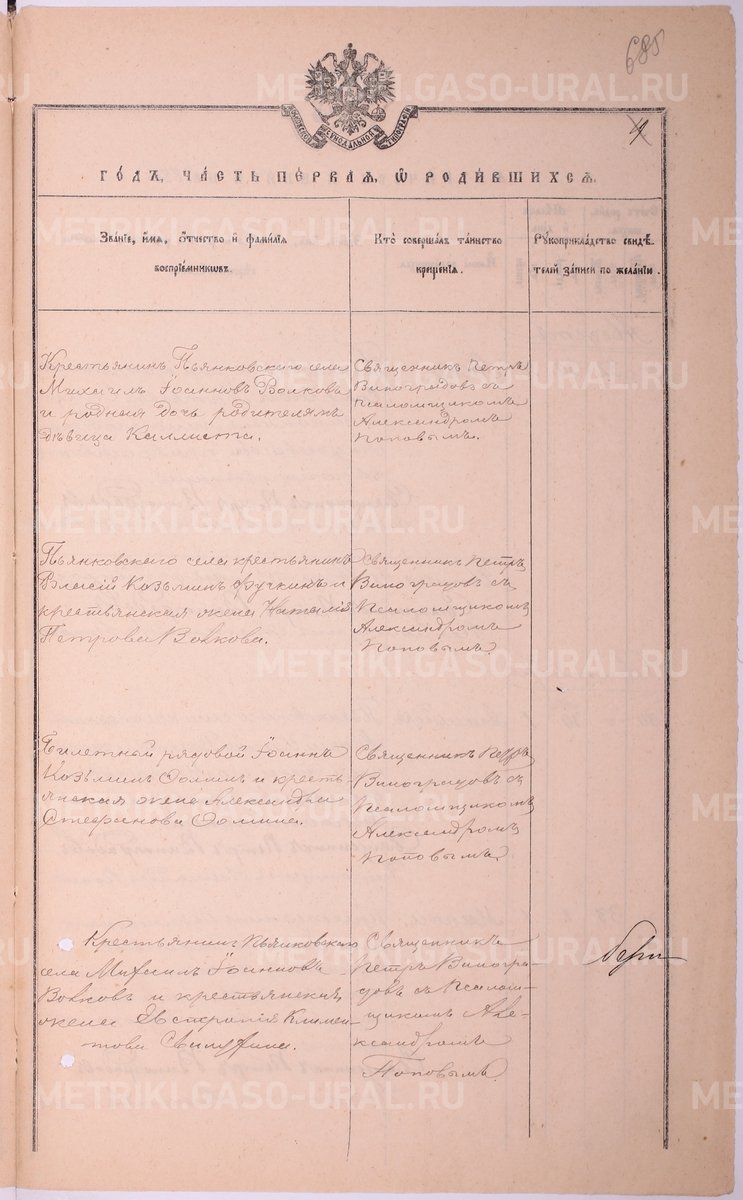 685
4
ГО́ДЪ, ЧА́СТЬ ПЕ́РВАЯ, Ѡ҆ РОДИ́ВШИХСЯ.
Зва́нїе, и҆́мя, ѻ҆́тчество и҆ фами́лїя
воспрїе́мникѡвъ.
Кто̀ соверша́лъ та́инство
креще́нїя.
Рꙋкоприкла́дство свидѣ́-
телей за́писи по жела́нїю.
Крестьянинъ Пьянковскаго села
Михаилъ Іоанновъ Волковъ
и родная дочь родителямъ
дѣвица Каллиста.
Священникъ Петръ
Виноградовъ съ
псаломщикомъ
Александромъ
Поповымъ.
Пьянковскаго села крестьянинъ
Власій Козьминъ Фучкинъ и
крестьянская жена Наталія
Петрова Волкова.
Священникъ Петръ
Виноградовъ съ
Псаломщикомъ
Александромъ
Поповымъ.
Билетный рядовой Іоаннъ
Козьминъ Ѳоминъ и кресть-
янская жена Александра
Стефанова Ѳомина.
Священникъ Петръ
Виноградовъ съ
Псаломщикомъ
Александромъ
Поповымъ.
Крестьянинъ Пьянковскаго
села Михаилъ Іоанновъ
Волковъ и крестьянская
жена Евстолія Климен-
това
Священникъ
Петръ Виногра-
довъ съ Псалом-
щикомъ Але-
ксандромъ
Поповымъ.
METRIKI.GASO-URAL.RU